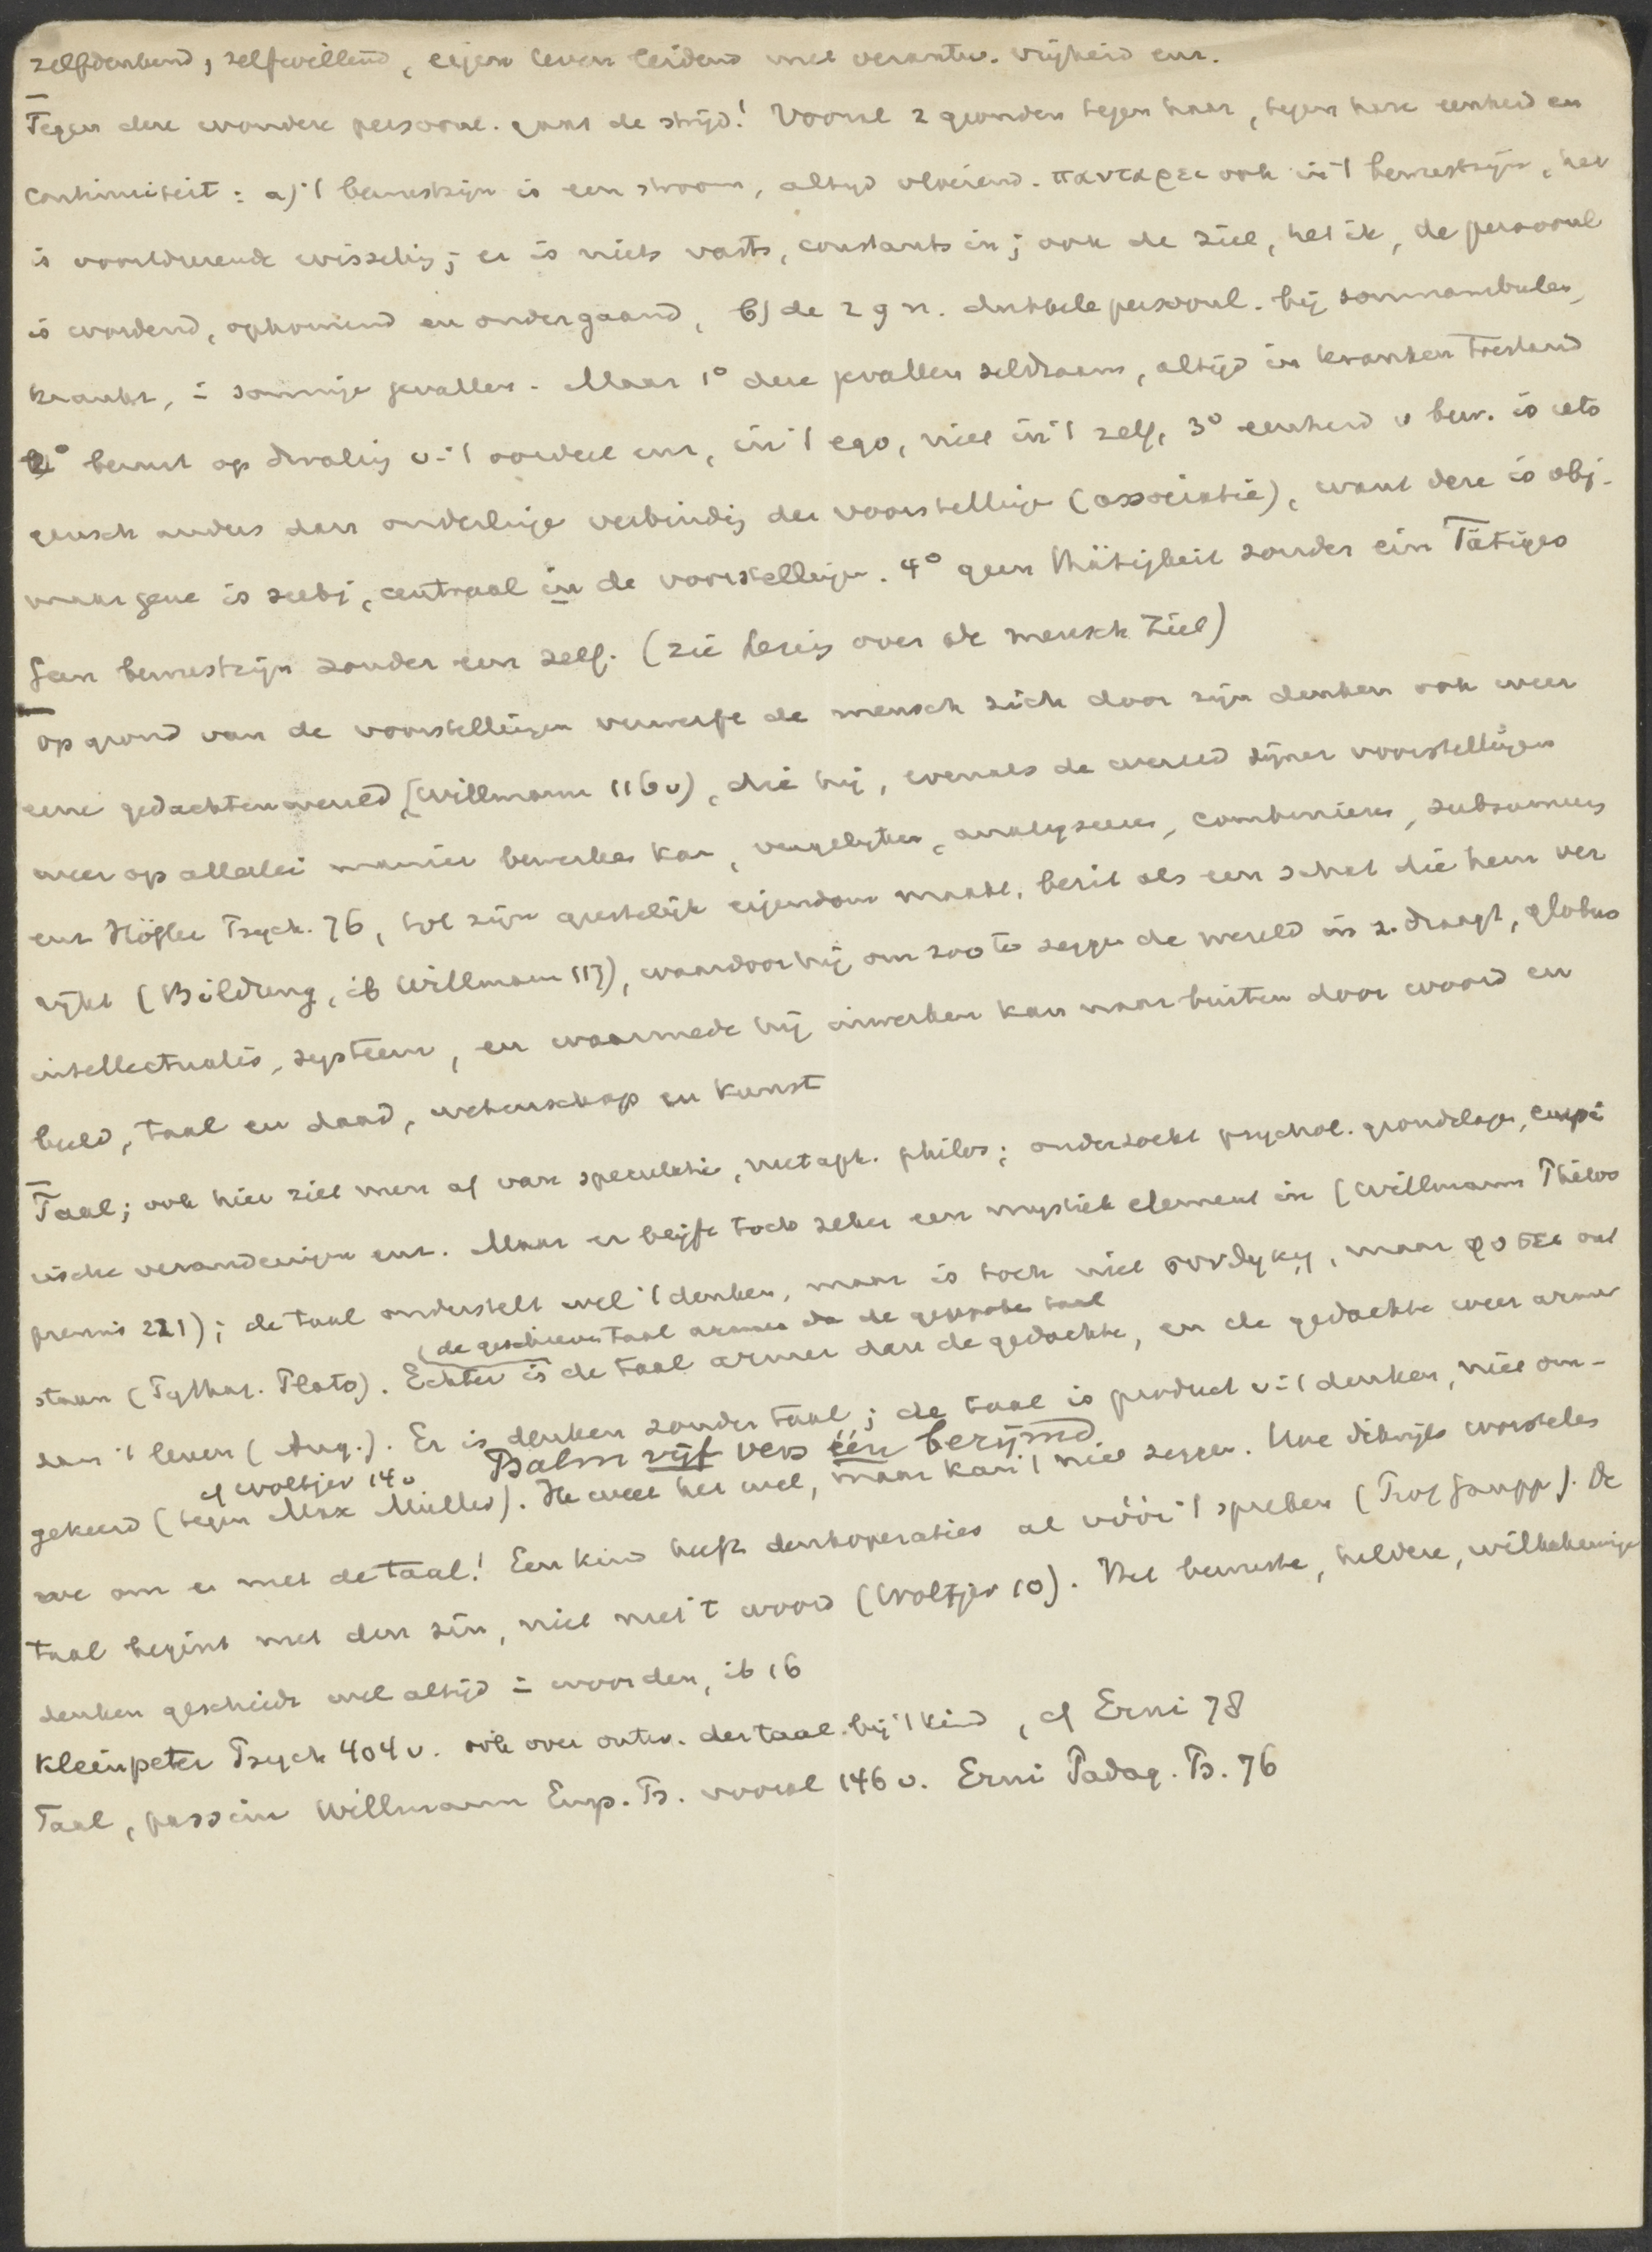 zelfdenkend, zelfwillend, eigen leven leidend met verantw. vrijheid enz.
Tegen deze wondere persoonl. gaat de strijd! Vooral 2 gronden tegen haar, tegen hare eenheid en
continuiteit: a) 't bewustzijn is een stroom, altijd vloeiend. πανταρει ook in 't bewustzijn, het
is voortdurende wisseling; er is niets vasts, constants in; ook de ziel, het ik, de persoonl
is wordend, opkomend en ondergaand, b) de zgn. dubbele persoonl. bij somnambulen,
kranks, in sommige gevallen. Maar 1° deze gevallen zeldzaam, altijd in kranken toestand
2° berust op dwaling v 't oordeel enz, in 't ego, niet in 't zelf, 3° eenheid v bew. is iets
gansch anders dan onderlinge verbinding der voorstellingen (associatie), want deze is obj.
maar gene is subj, centraal in de voorstellingen. 4° geen Thätigkeit zonder ein Tätiges
Geen bewustzijn zonder een zelf. (zie lezing over de mensch. Ziel)
op grond van de voorstellingen verwerft de mensch zich door zijn denken ook weer
eene gedachtenwereld (Willmann 116v), die hij, evenals de wereld zijner voorstellingen
weer op allerlei manier bewerken kan, vergelijken, analyseren, combineren, subsumeeren
enz Höfler Psych. 76, tot zijn geestelijk eigendom maakt, bezit als een schat die hem ver
rijkt (Bildung, ib Willmann 117), waardoor hij om zoo te zeggen de wereld in z. draagt, globus
intellectualis, systeem, en waarmede hij inwerken kan naar buiten door woord en
beeld, taal en daad, wetenschap en kunst
Taal; ook hier ziet men af van speculatie, metaph. philos; onderzoekt psychol. grondslagen, empi
rische veranderingen enz. Maar er blijft toch zeker een mystiek element in (Willmann Philos
premis 221); de taal onderstelt wel 't denken, maar is toch niet συνθηκη, maar φυσει ont
(de geschreven taal armer da de gesproken taal
staan (Pythag. Plato). Echter is de taal armer dan de gedachte, en de gedachte weer armer
dan 't leven (Aug.). Er is denken zonder taal; de taal is product v 't denken, niet om-
cf Woltjer 14v Psalm vijf vers één berijmd
gekeerd (tegen Max Müller). Ik weet het wel, maar kan 't niet zeggen. Hoe dikwijls worstelen
we om er met de taal! Een kind heeft denkoperaties al vóór 't spreken (Prof Gaupp). De
taal begint met den zin, niet met 't woord (Woltjer 10). Het bewuste, heldere, willekeurige
denken geschiedt wel altijd in woorden, ib 16
Kleinpeter Psych 404v. ook over ontw. der taal bij 't kind, cf Erni 78
Taal, passim Willmann Emp. Ps. vooral 146v. Erni Padag. Ps. 76